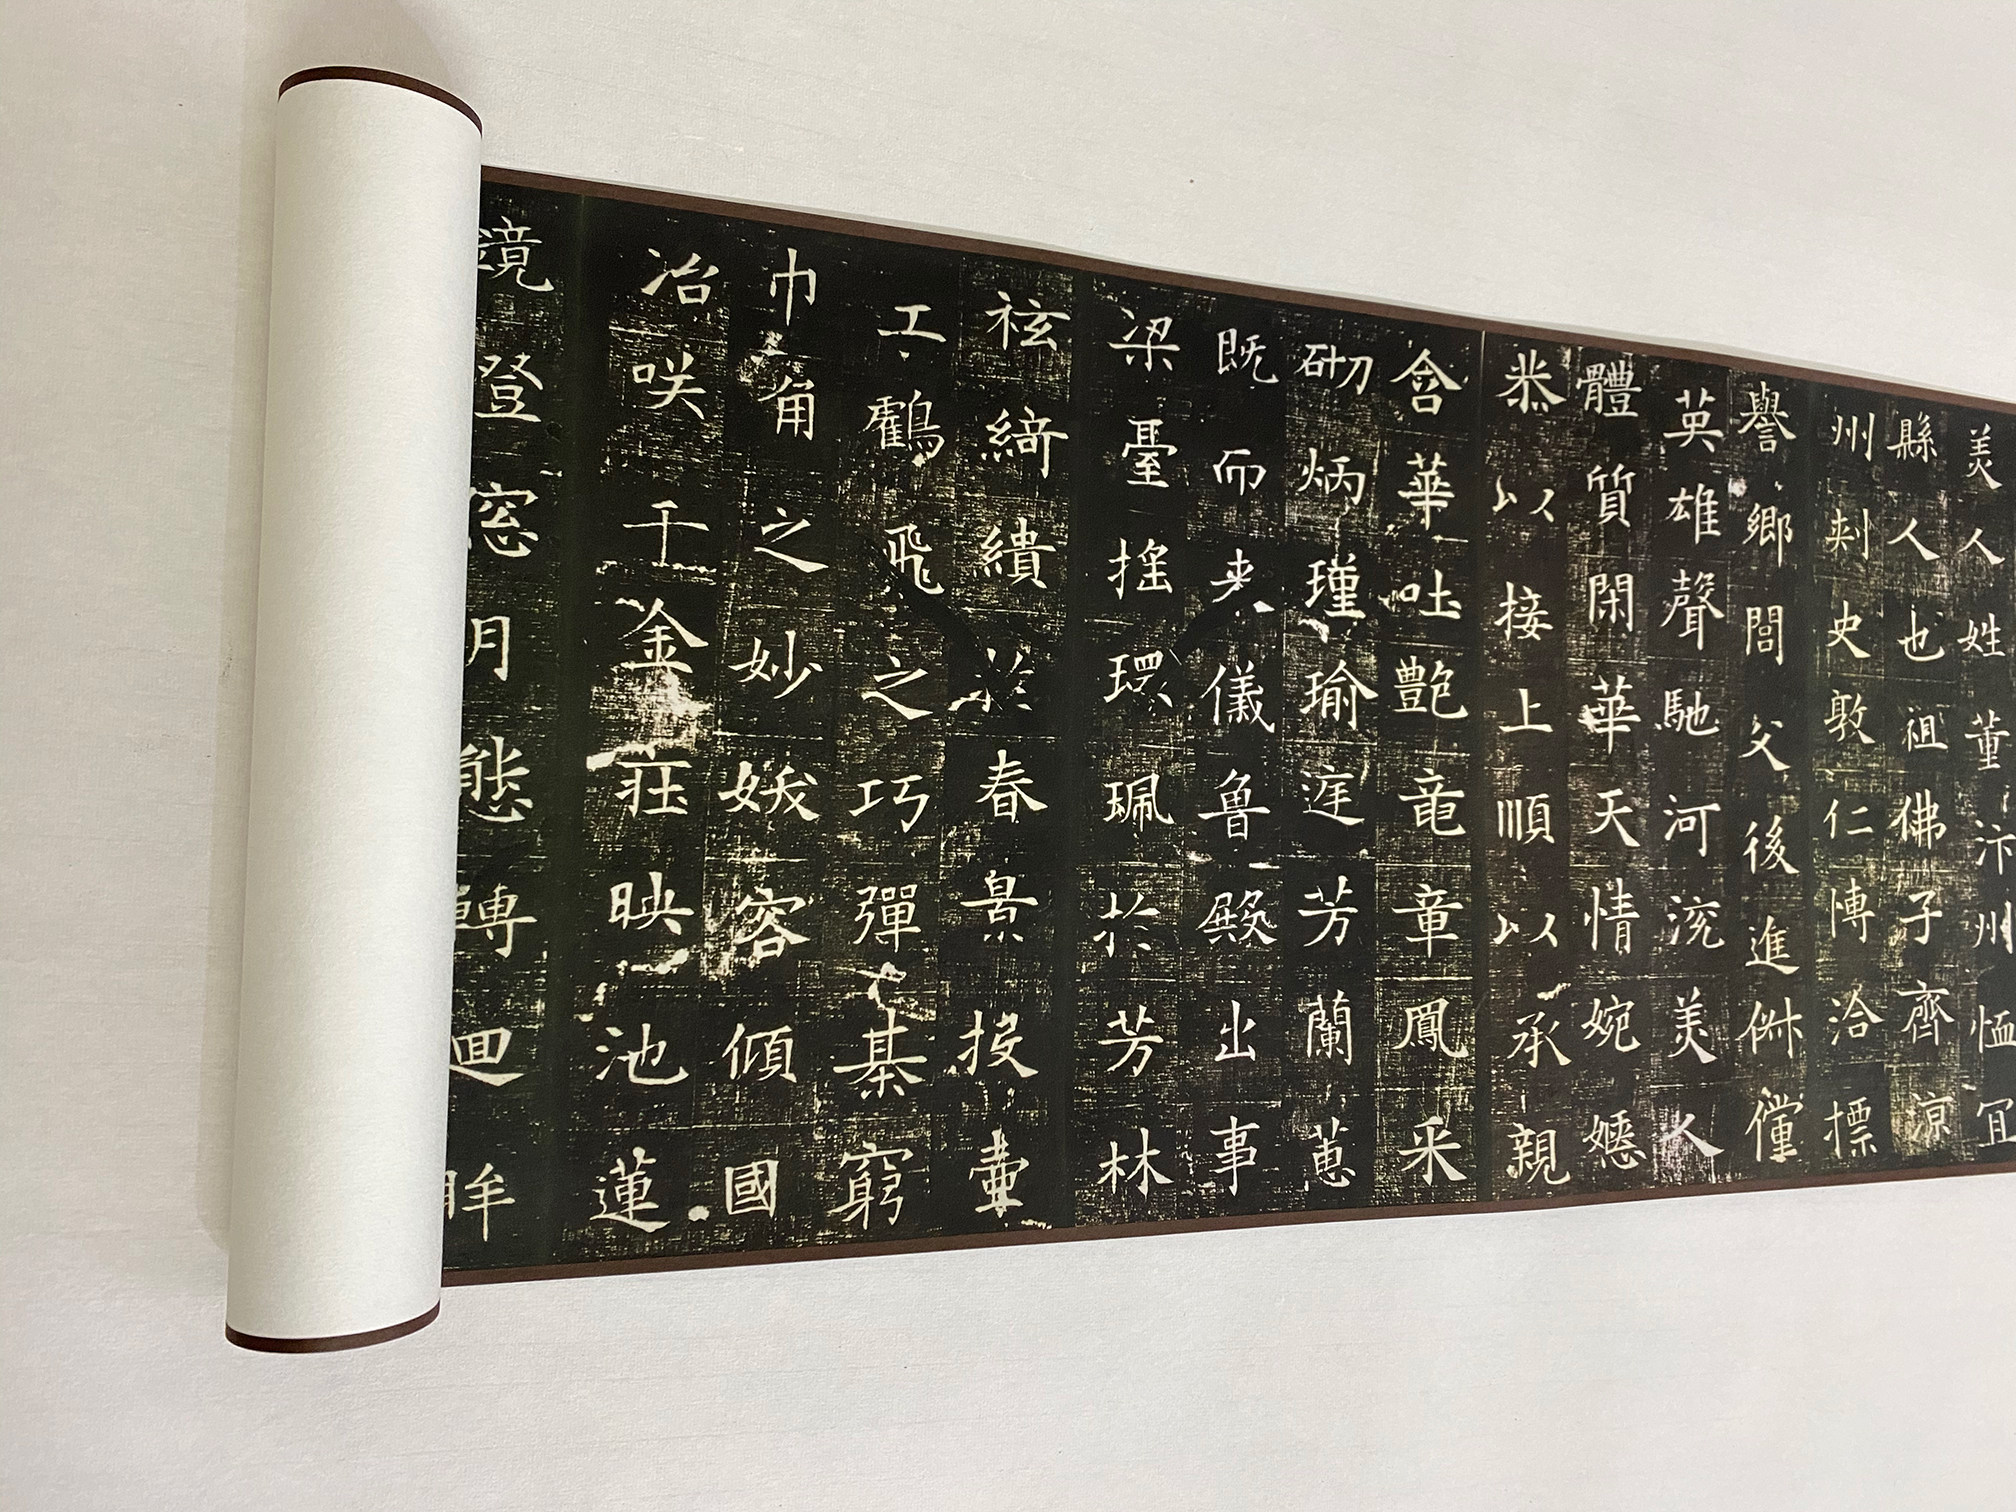 美人姓董汴州恤宜
縣人也祖佛子齊涼
州刾史敦仁博洽摽
譽鄉閭父後進俶儻
英雄聲馳河浣美人
體質閑華天情婉嬺
恭以接上順以承親
含華吐艷竜章鳳采
砌炳瑾瑜庭芳蘭蕙
既而来儀魯殿出事
梁臺搖環珮於芳林
袨綺繢於春景投壷
工鶴飛之巧彈棊窮
巾角之妙妖容傾國
冶咲千金莊映池蓮
鏡澄窓月態轉迴眸